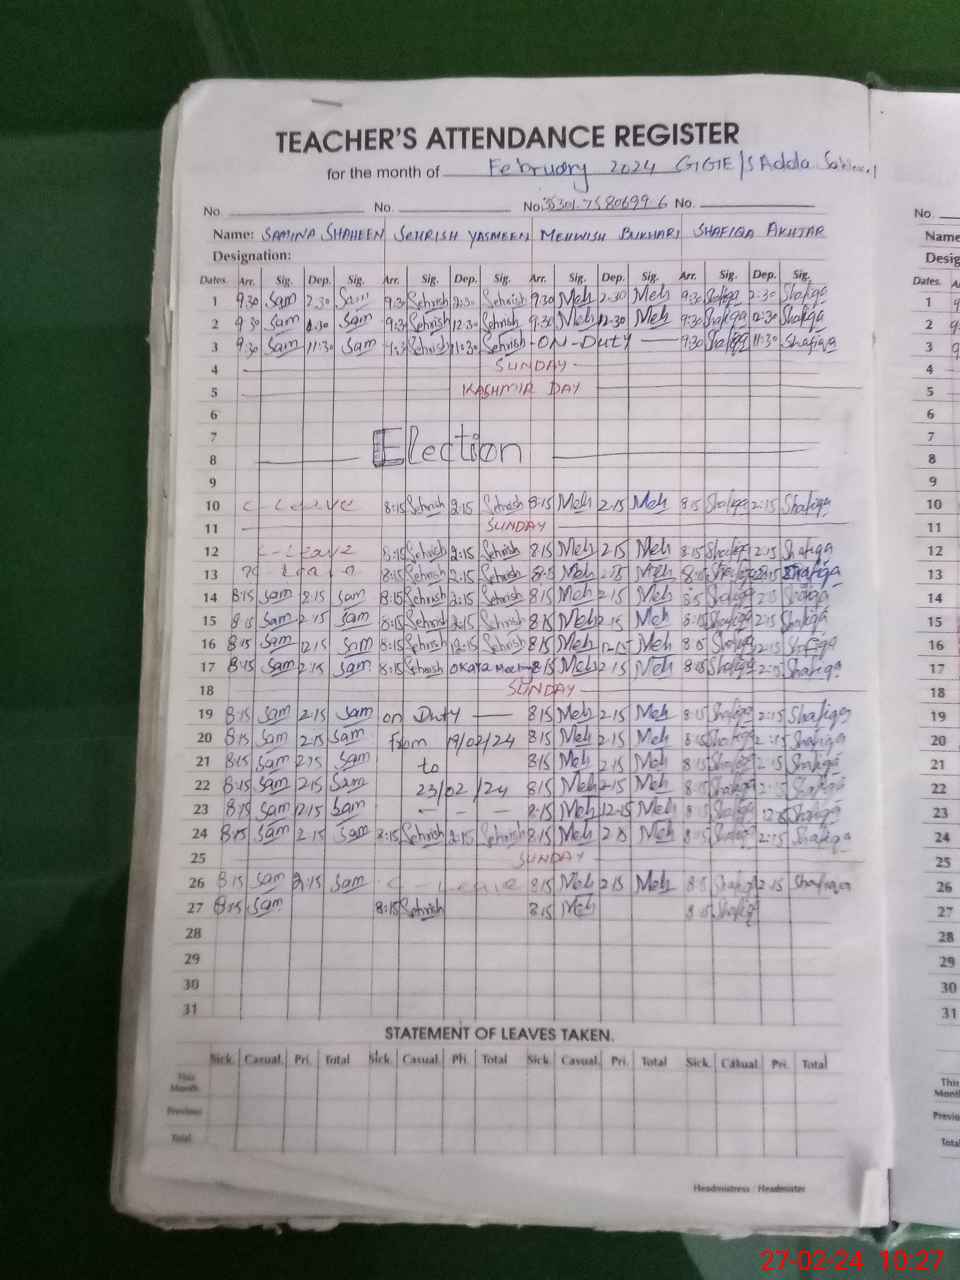 TEACHER'S ATTENDANCE REGISTER
for the month of February 2024 GGE/S Adda
No. No. No. 35301-7580699-6 No.
Name: SAMINA SHAHEEN SEHRISH YASMEEN MEHWISH BUKHARI SHAFIQA AKHTAR
Designation:
Dates. Arr. Sig. Dep. Sig. Arr. Sig. Dep. Sig. Arr. Sig. Dep. Sig. Arr. Sig. Dep. Sig.
1 9:30 Sam 2:30 Sam 9:30 Sehrish 2:30 Sehrish 9:30 Meh 2:30 Meh 9:30 Shafiqa 2:30 Shafiqa
2 9:30 Sam Sam 9:30 Sehrish 12:30 Sehrish 9:30 Meh 12:30 Meh 9:30 Shafiqa 12:30 Shafiqa
3 9:30 Sam 11:30 Sam Sehrish 11:30 Sehrish ON-Duty 9:30 Shafiqa 11:30 Shafiqa
4 SUNDAY
5 KASHMIR DAY
6
7
8 Election
9
10 C-Leave 8:15 Sehrish 2:15 Sehrish 8:15 Meh 2:15 Meh 8:15 Shafiqa 2:15 Shafiqa
11 SUNDAY
12 C-Leave 8:15 Sehrish 2:15 Sehrish 8:15 Meh 2:15 Meh 8:15 Shafiqa 2:15 Shafiqa
13 8:15 Sehrish 2:15 Sehrish 8:15 Meh 2:15 Meh 8:15 Shafiqa 2:15 Shafiqa
14 8:15 Sam 2:15 Sam 8:15 Sehrish 2:15 Sehrish 8:15 Meh 2:15 Meh 8:15 Shafiqa 2:15 Shafiqa
15 8:15 Sam 2:15 Sam 8:15 Sehrish 2:15 Sehrish 8:15 Meh 2:15 Meh 8:15 Shafiqa 2:15 Shafiqa
16 8:15 Sam 12:15 Sam 8:15 Sehrish 12:15 Sehrish 8:15 Meh 12:15 Meh 8:15 Shafiqa 12:15 Shafiqa
17 8:15 Sam 2:15 Sam 8:15 Sehrish OKARA Meeting 8:15 Meh 2:15 Meh 8:15 Shafiqa 2:15 Shafiqa
18 SUNDAY
19 8:15 Sam 2:15 Sam on Duty 8:15 Meh 2:15 Meh 8:15 Shafiqa 2:15 Shafiqa
20 8:15 Sam 2:15 Sam From 19/02/24 8:15 Meh 2:15 Meh 8:15 Shafiqa 2:15 Shafiqa
21 8:15 Sam 2:15 Sam to 8:15 Meh 2:15 Meh 8:15 Shafiqa 2:15 Shafiqa
22 8:15 Sam 2:15 Sam 23/02/24 8:15 Meh 2:15 Meh 8:15 Shafiqa 2:15 Shafiqa
23 8:15 Sam 12:15 Sam - - - 8:15 Meh 12:15 Meh 8:15 Shafiqa 12:15 Shafiqa
24 8:15 Sam 2:15 Sam 8:15 Sehrish 2:15 Sehrish 8:15 Meh 2:15 Meh 8:15 Shafiqa 2:15 Shafiqa
25 SUNDAY
26 8:15 Sam 2:15 Sam C-Leave 8:15 Meh 2:15 Meh 8:15 Shafiqa 2:15 Shafiqa
27 8:15 Sam 8:15 Sehrish 8:15 Meh 8:15 Shafiq
28
29
30
31
STATEMENT OF LEAVES TAKEN.
Sick. Casual. Pri. Total Sick. Casual. Pri. Total Sick. Casual. Pri. Total Sick. Casual. Pri. Total
This Month.
Previous
Total.
Headmistress / Headmaster
No.
Name
Desig
Dates.
1
2
3
4
5
6
7
8
9
10
11
12
13
14
15
16
17
18
19
20
21
22
23
24
25
26
27
28
29
30
31
This
Month
Previo
Total
27-02-24 10:27